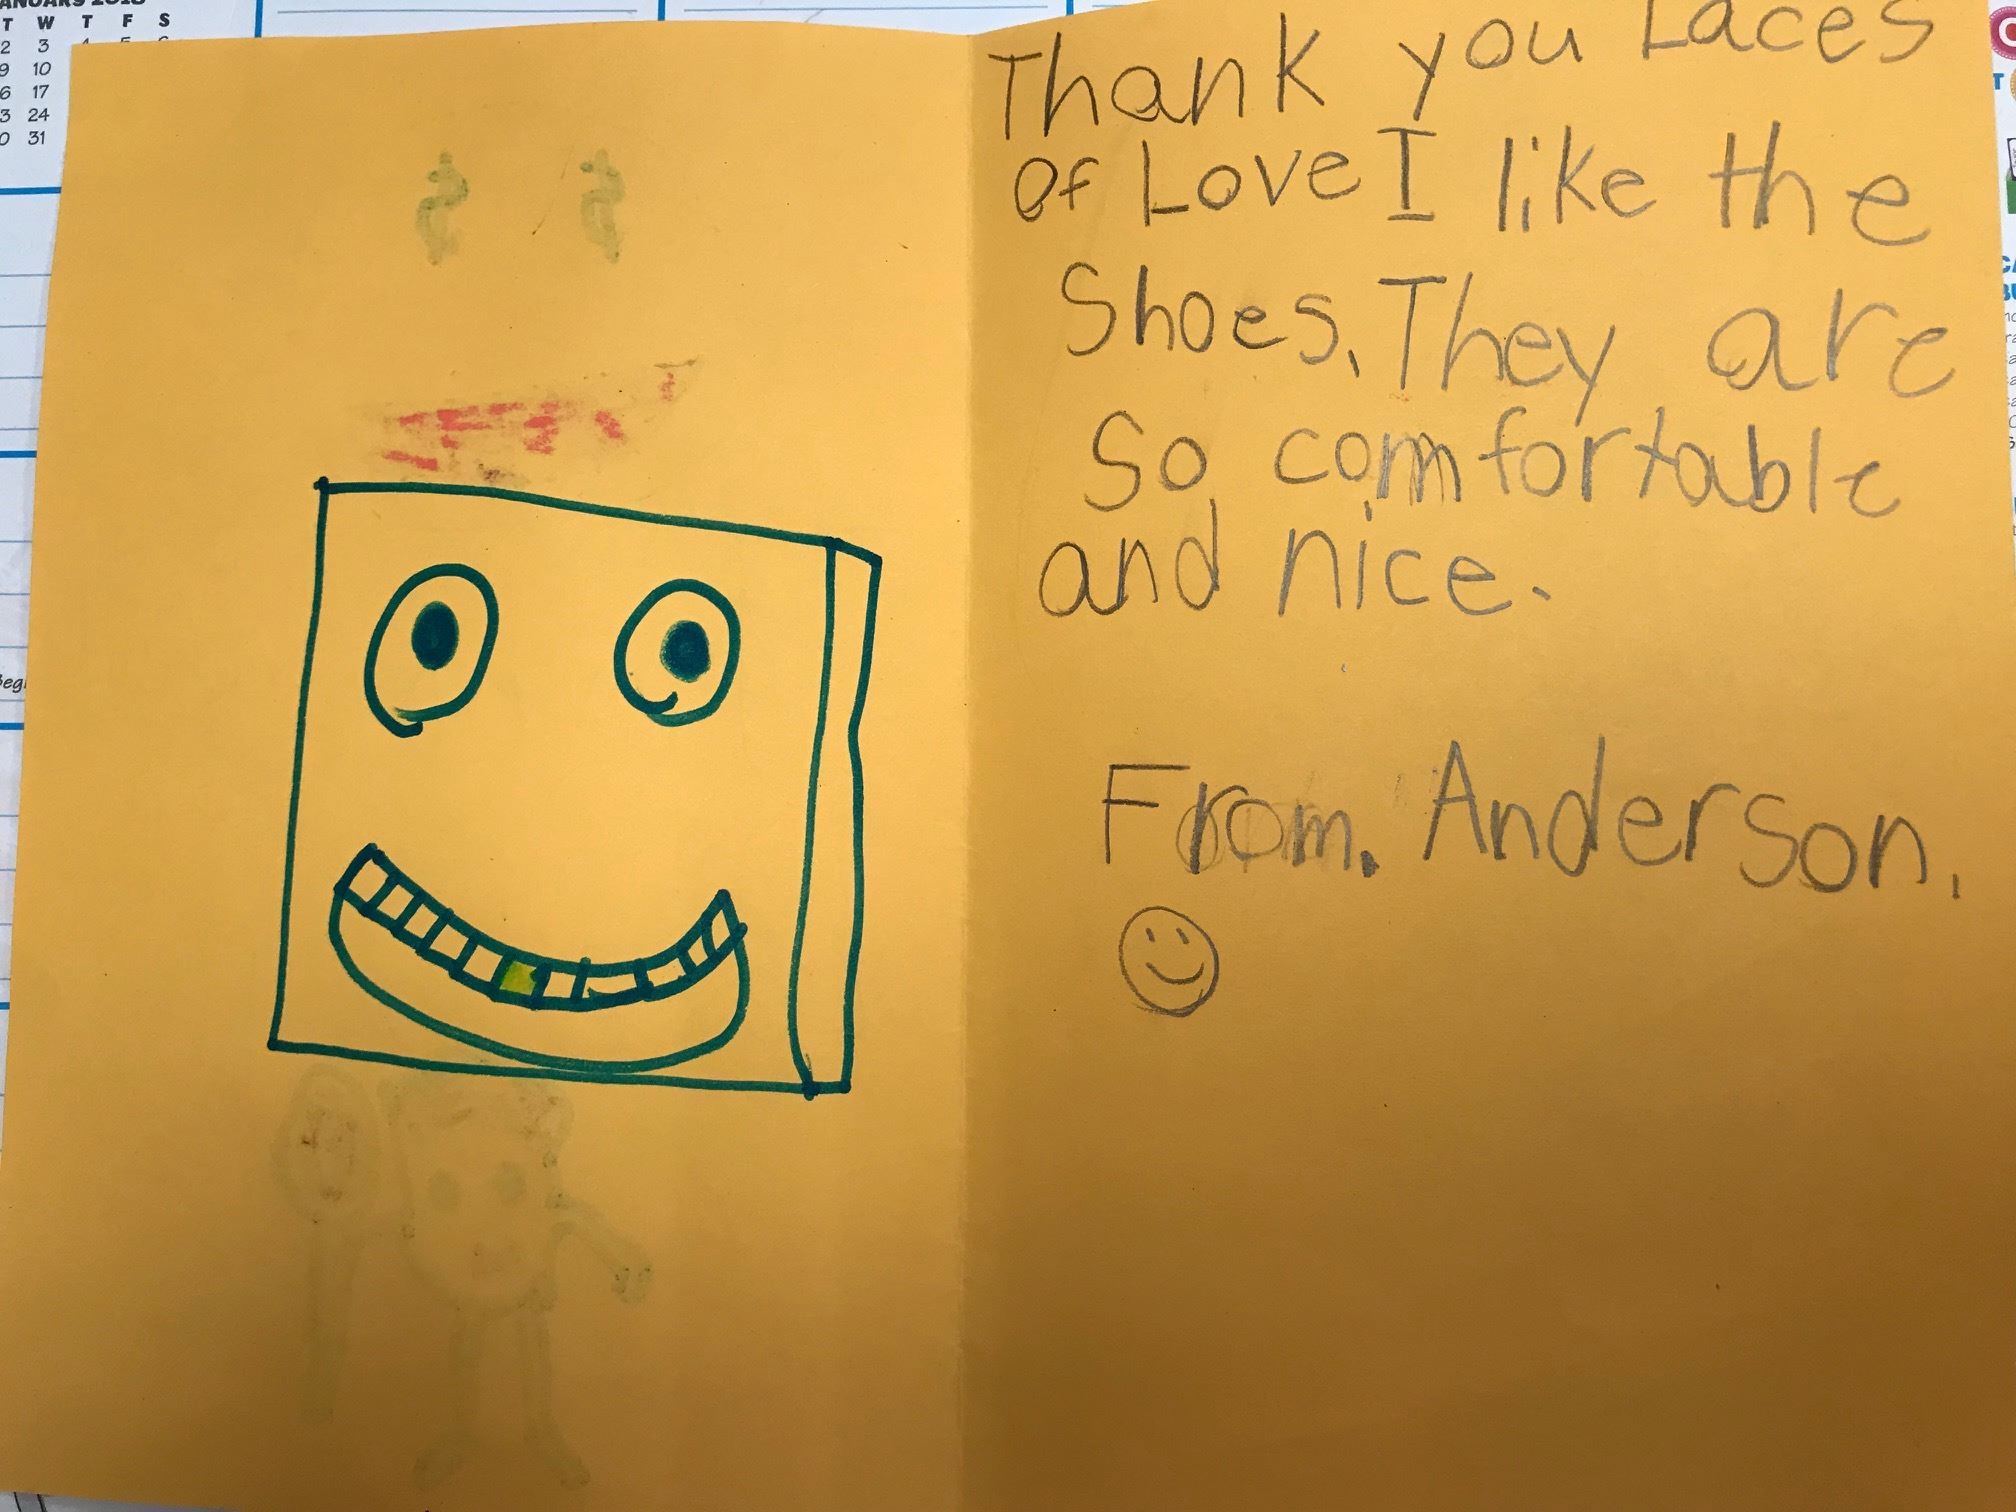 T W T F S
2 3 4 5 6
9 10
6 17
3 24
0 31
$ $
Thank you Laces
Of Love I like the
Shoes. They are
So comfortable
and nice.
From. Anderson.